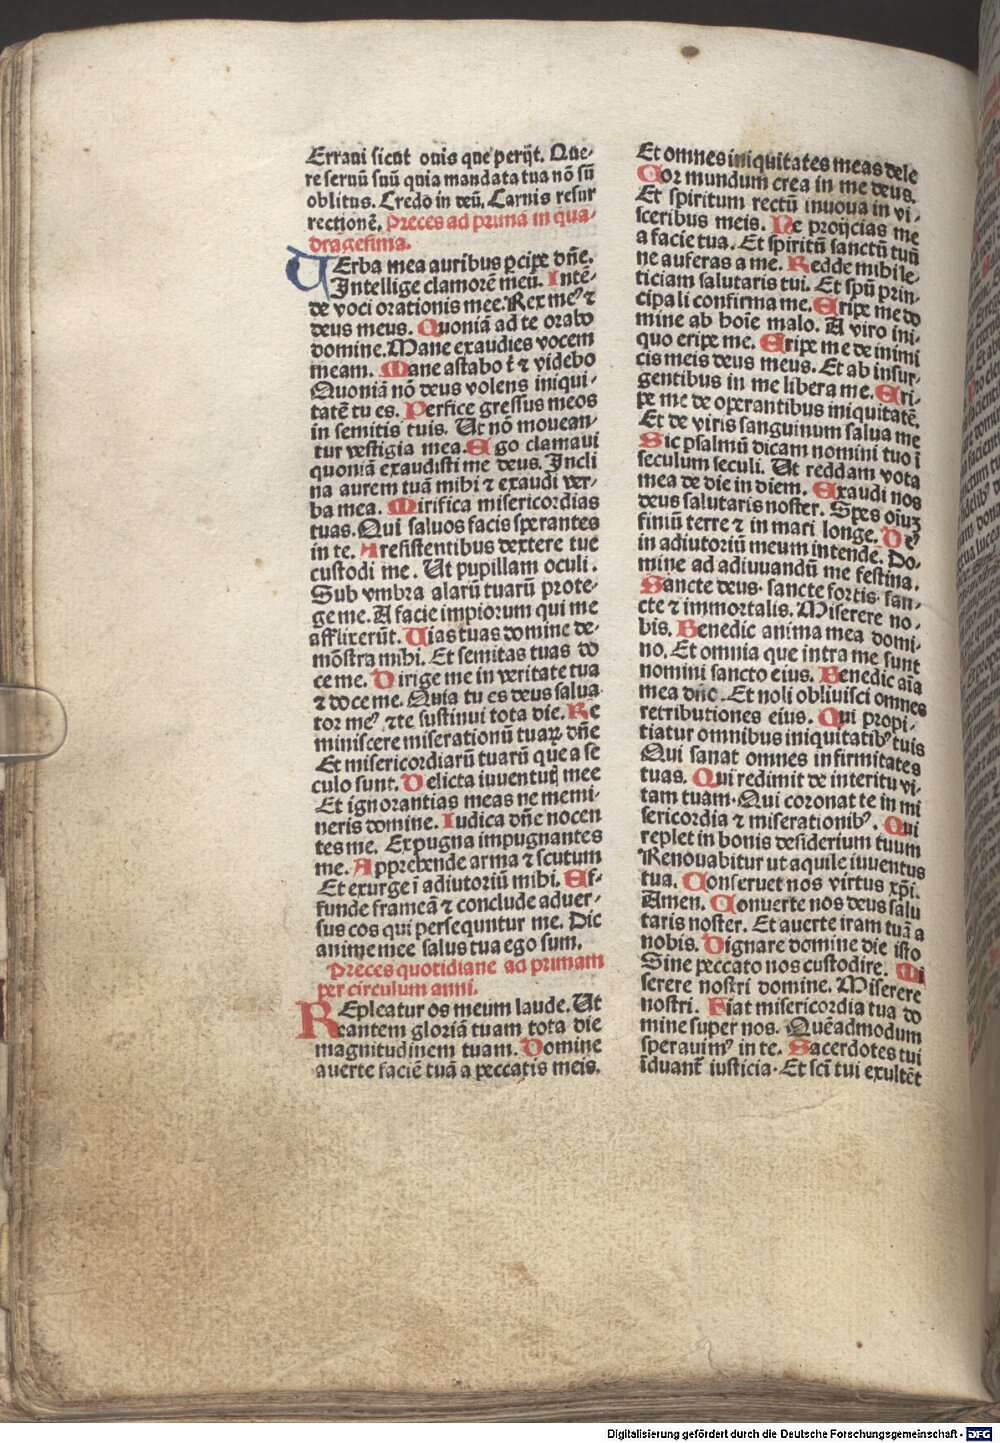 Erraui sicut ouis que perijt. Que-
re seruū tuū quia mandata tua nō sū
oblitus. Credo in deū. Carnis resur
rectionē. Preces ad primā in qua-
dragesima.
VErba mea auribus ꝑcipe dn̄e.
Intellige clamorē meū. Intē-
de voci orationis mee. Rex meꝰ ⁊
deus meus. Quoniā ad te orabo
domine. Mane exaudies vocem
meam. Mane astabo t̄ ⁊ videbo
Quoniā nō deus volens iniqui-
tatē tu es. Perfice gressus meos
in semitis tuis. Ut nō mouean-
tur vestigia mea. Ego clamaui
quoniā exaudisti me deus. Incli
na aurem tuā mihi ⁊ exaudi ver-
ba mea. Mirifica misericordias
tuas. Qui saluos facis sperantes
in te. A resistentibus dextere tue
custodi me. Ut pupillam oculi.
Sub vmbra alarū tuarū prote-
ge me. A facie impiorum qui me
afflixerūt. Uias tuas domine de-
mōstra mihi. Et semitas tuas do
ce me. Dirige me in veritate tua
⁊ doce me. Quia tu es deus salua
tor meꝰ ⁊ te sustinui tota die. Re
miniscere miserationū tuaꝝ dn̄e
Et misericordiarū tuarū que a se
culo sunt. Delicta iuuentut̄ mee
Et ignorantias meas ne memi-
neris domine. Iudica dn̄e nocen
tes me. Expugna impugnantes
me. Apprehende arma ⁊ scutum
Et exurge ī adiutoriū mihi. Ef-
funde frameā ⁊ conclude aduer-
sus eos qui persequntur me. Dic
anime mee salus tua ego sum.
Preces quotidiane ad primam
per circulum anni.
REpleatur os meum laude. Ut
cantem gloriā tuam tota die
magnitudinem tuam. Domine
auerte faciē tuā a peccatis meis.
Et omnes iniquitates meas dele
Cor mundum crea in me deus.
Et spiritum rectū innoua in vi-
sceribus meis. Ne proijcias me
a facie tua. Et spiritū sanctū tuū
ne auferas a me. Redde mihi le-
ticiam salutaris tui. Et spū prin-
cipali confirma me. Eripe me do
mine ab hoīe malo. A viro ini-
quo eripe me. Eripe me de inimi
cis meis deus meus. Et ab insur-
gentibus in me libera me. Eri-
pe me de operantibus iniquitatē.
Et de viris sanguinum salua me
Sic psalmū dicam nomini tuo ī
seculum seculi. Ut reddam vota
mea de die in diem. Exaudi nos
deus salutaris noster. Spes oīuꝫ
finiū terre ⁊ in mari longe. Deꝰ
in adiutoriū meum intende. Do-
mine ad adiuuandū me festina.
Sancte deus. sancte fortis. san-
cte ⁊ immortalis. Miserere no-
bis. Benedic anima mea domi-
no. Et omnia que intra me sunt
nomini sancto eius. Benedic aīa
mea dn̄o. Et noli obliuisci omnes
retributiones eius. Qui propi-
tiatur omnibus iniquitatibꝰ tuis
Qui sanat omnes infirmitates
tuas. Qui redimit de interitu vi-
tam tuam. Qui coronat te in mi
sericordia ⁊ miserationibꝰ. Qui
replet in bonis desiderium tuum
Renouabitur ut aquile iuuentus
tua. Conseruet nos virtus xp̄i.
Amen. Conuerte nos deus salu
taris noster. Et auerte iram tuā a
nobis. Dignare domine die isto
Sine peccato nos custodire. Mi
serere nostri domine. Miserere
nostri. Fiat misericordia tua do
mine super nos. Quēadmodum
sperauimꝰ in te. Sacerdotes tui
īduant̄ iusticia. Et scī tui exultēt
Digitalisierung gefördert durch die Deutsche Forschungsgemeinschaft - DFG